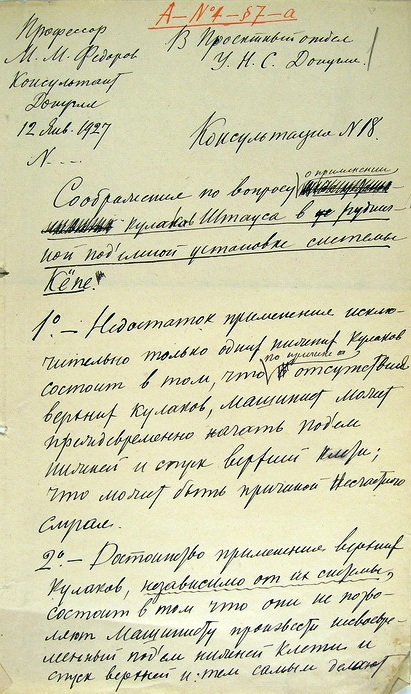 А-№4-57-а
Профессор
М. М. Федоров
Консультант
Донугля
12 Янв. 1927
N....
В Проектный отдел
У.Н.С. Донугля.
Консультация N 18.
о применении
Соображения по вопросу
кулаков Штауса в руднич-
ной под'емной установке системы
Кёпе.
1º.- Недостаток применения исклю-
чительно только одних нижних кулаков
по причине
состоит в том, что отсутствия
верхних кулаков, машинист может
преждевременно начать под'ем
нижней и спуск верхней клети;
что может быть причиной несчастного
случая.
2º.- Достоинство применения верхних
кулаков, независимо от их системы,
состоит в том что они не позво-
ляют машинисту произвести несвоевре-
менный под'ем нижней клети и
спуск верхней и тем самым делают